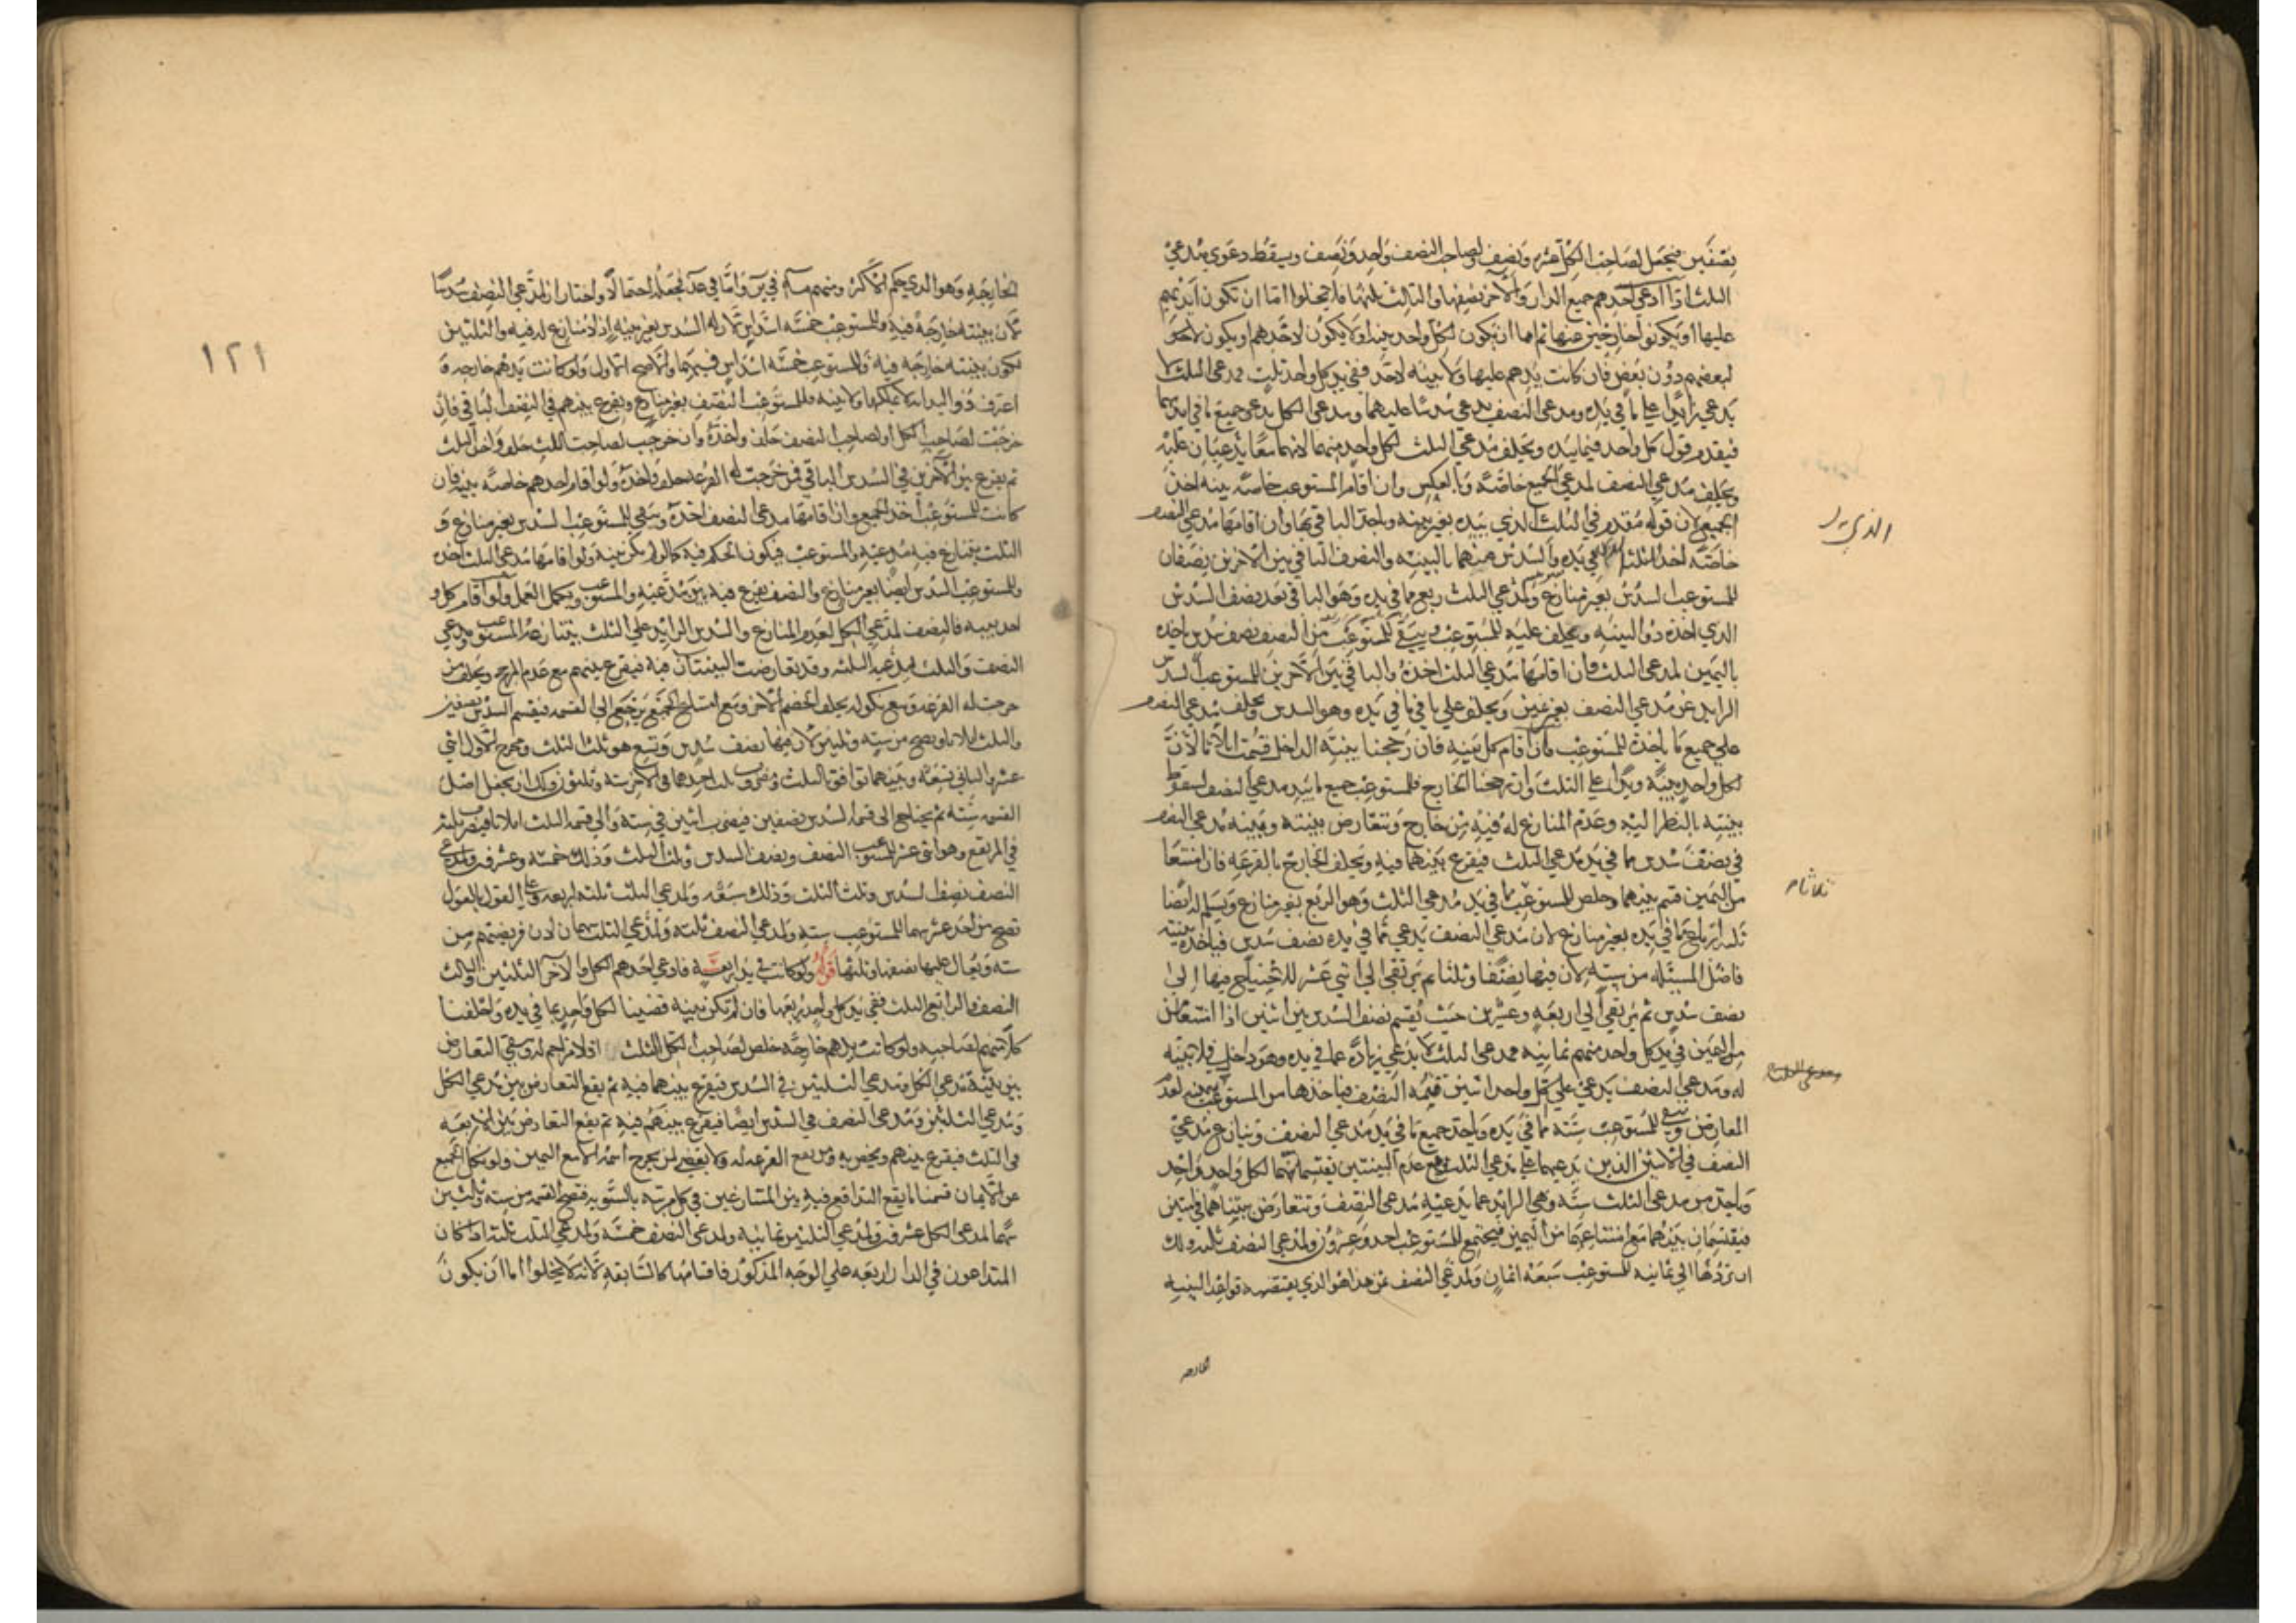 نصفين فيحصل لصاحب الكل عشره ونصف ولصاحب النصف واحد ونصف ويسقط دعوى مدعي
الثلث اذا ادعى احدهم جميع الدار والآخر نصفها والثالث ثلثها فلا يخلوا اما ان تكون ايديهم
عليها او يكونوا خارجين عنها ثم اما ان يكون لكل واحد بينه او لا يكون لاحدهم او يكون لاحد
لبعضهم دون بعض فان كانت يدهم عليها ولا بينه لاحد ففي يد كل واحد ثلث فمدعي الثلث لا
يدعي زايدا على ما في يده ومدعي النصف يدعي سدسا عليهما ومدعي الكل يدعي جميع ما في ايديهما
فيقدم قول كل واحد فيما بيده ويحلف مدعي الثلث لكل واحد منهما لانهما معا يدعيان عليه
ويحلف مدعي النصف لمدعي الجميع خاصة وبالعكس وان اقام المستوعب خاصة بينه اخذ
الجميع لان قوله مقدم في الثلث الذي بيده بغير بينه وياخذ الباقي بها وان اقامها مدعي النصف
خاصة اخذ الثلث في يده والسدس منهما بالبينه والنصف الباقي بين الآخرين نصفان
للمستوعب السدس بغير منازع ولمدعي الثلث ربع ما في يده وهو الباقي بعد نصف السدس
الذي اخذه ذو البينه ويحلف عليه للمستوعب ويبقى للمستوعب من النصف نصف سدس ياخذه
باليمين لمدعي الثلث وان اقامها مدعي الثلث اخذه والباقي بين الآخرين للمستوعب السدس
الزايد عن مدعي النصف بغير يمين ويحلف على باقي ما في يده وهو السدس ويحلف مدعي النصف
على جميع ما ياخذه للمستوعب فان اقام كل بينه فان رجحنا بينة الداخل قسمت اثلاثا لأن
لكل واحد بينة ويدا على الثلث وان رجحنا الخارج فللمستوعب جميع ما بيد مدعي النصف لسقوط
بينته بالنظر اليه وعدم المنازع له فيه من خارج وتتعارض بينته وبينه مدعي النصف
في نصف سدس مما في يد مدعي الثلث فيقرع بينهما فيه ويحلف الخارج بالقرعه فان امتنعا
من اليمين قسم بينهما وخلص للمستوعب مما في يد مدعي الثلث وهو الربع بغير منازع ويسلم له ايضا
ثلثه ارباع مما في يده بغير منازع لان مدعي النصف يدعي مما في يده نصف سدس فياخذه ببينته
فاصل المسئله من سته لان فيها نصفا وثلثا ثم يرتقي الى اثني عشر للاحتياج فيها الى
نصف سدس ثم يرتقي الى اربعة وعشرين حيث يقسم نصف السدس بين اثنين اذا امتنعا من
من اليمين في يد كل واحد منهم ثمانيه فمدعي الثلث لا يدعي زيادة عما في يده وهو داخل فلا بينة
له ومدعي النصف يدعي على كل واحد اثنين تتمة النصف فياخذها من المستوعب ببينته لعدم
المعارض ويبقى للمستوعب ستة مما في يده وياخذ جميع ما في يد مدعي النصف وينازع مدعي
النصف في الاثنين الذين يدعيهما على مدعي الثلث ومع عدم البينتين يقتسمانهما لكل واحد واحد
وياخذ من مدعي الثلث ستة وهي الزايد عما يدعيه مدعي النصف وتتعارض بينتاهما في اثنين
فيقتسمان بينهما مع امتناعهما من اليمين فيجتمع للمستوعب احد وعشرون ولمدعي النصف ثلثه ولك
ان تردها الى ثمانيه للمستوعب سبعة اثمان ولمدعي النصف ثمن هذا هو الذي يقتضيه قواعد البينه
الخارجه
ثلاثا م
الخارجه وهو الذي حكم
١٢١
وللمستوعب خمسة اسداس لان له السدس بغير بينه اذ لا منازع له فيه والثلثين
تكون بينته خارجة فيه وللمستوعب خمسة اسداس فيهما والاصح الاول ولو كانت يدهم خارجه و
اعترف ذو اليد انه لا يملكها ولا بينه فللمستوعب النصف بغير منازع ويقرع بينهم في النصف الباقي فان
خرجت لصاحب الكل او لصاحب النصف حلف واخذه وان خرجت لصاحب الثلث حلف واخذ الثلث
ثم يقرع بين الآخرين في السدس الباقي فمن خرجت له القرعه حلف واخذه ولو اقام احدهم خاصة بينه فان
كانت للمستوعب اخذ الجميع وان اقامها مدعي النصف اخذه وبقي للمستوعب السدس بغير منازع و
الثلث يتنازع فيه مدعيه والمستوعب فيكون الحكم فيه كما لو لم تكن بينه ولو اقامها مدعي الثلث اخذه
وللمستوعب السدس ايضا بغير منازع والنصف يقرع فيه بين مدعيه والمستوعب ويكمل العمل ولو اقام كل و
احد بينه فالنصف لمدعي الكل لعدم المنازع والسدس الزايد على الثلث يتنازعه المستوعب ومدعي
النصف والثلث يدعيه الثلثه وقد تعارضت البينتان فيه فيقرع بينهم مع عدم المرجح ويحلف من
خرجت له القرعه ومع نكوله يحلف الخصم الآخر ومع امتناع الجميع يرجع الى القسمه فيقسم السدس نصفين
والثلث اثلاثا وتصح من سته وثلثين لان فيها نصف سدس وتسع هو ثلث الثلث ومخرج الاول اثني
عشر والثاني تسعة وبينهما توافق بالثلث ومضروب ثلث احدهما في الآخر سته وثلثون ولك ان تجعل اصل
القسمه سته ثم يحتاج الى قسمة السدس نصفين فيضرب اثنين في سته والى قسمة الثلث اثلاثا فيضرب ثلثه
في المرتفع وهو اثنى عشر للمستوعب النصف ونصف السدس وثلث الثلث وذلك خمسة وعشرون ولمدعي
النصف نصف السدس وثلث الثلث وذلك سبعه ولمدعي الثلث ثلثه اربعه وعلى القول بالعول
تصح من احد عشر سهما للمستوعب سته ولمدعي النصف ثلثه ولمدعي الثلث سهمان لان فريضتهم من
سته ويعال عليها نصفها وثلثها قوله ولو كانت في يد اربعة فادعى احدهم الكل والآخر الثلثين والثالث
النصف والرابع الثلث ففي يد كل واحد ربعها فان لم تكن بينه قضينا لكل واحد بما في يده واحلفنا
كلا منهم لصاحبه ولو كانت يدهم خارجه خلص لصاحب الكل الثلث اذ لا مزاحم له وبقي التعارض
بين بينة مدعي الكل ومدعي الثلثين في السدس فيقرع بينهما فيه ثم يقع التعارض بين مدعي الكل
ومدعي الثلثين ومدعي النصف في السدس ايضا فيقرع بينهم فيه ثم يقع التعارض بين الاربعه
في الثلث فيقرع بينهم ويخص به من تقع القرعه له ولا يقضى لمن يخرج اسمه الا مع اليمين ولو نكل الجميع
عن الايمان قسمنا ما يقع التدافع فيه بين المتنازعين في كل مرتبه بالسويه فتصح القسمه من سته وثلثين
سهما لمدعي الكل عشرون ولمدعي الثلثين ثمانيه ولمدعي النصف خمسة ولمدعي الثلث ثلثه اذا كان
المتداعون في الدار اربعه على الوجه المذكور فاقسامها كالسابقه لأنه لا يخلوا اما ان يكون